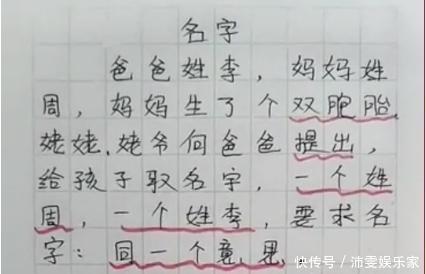 名字
爸爸姓李，妈妈姓
周，妈妈生了个双胞胎，
姥姥、姥爷向爸爸提出，
给孩子取名字，一个姓
周，一个姓李，要求名
字：同一个意思。
快传号/沛雯娱乐家